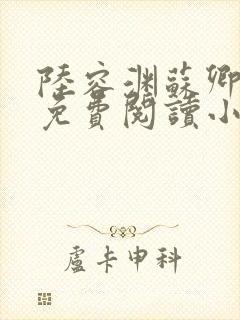 陸容淵蘇卿
免費閱讀小
盧卡申科